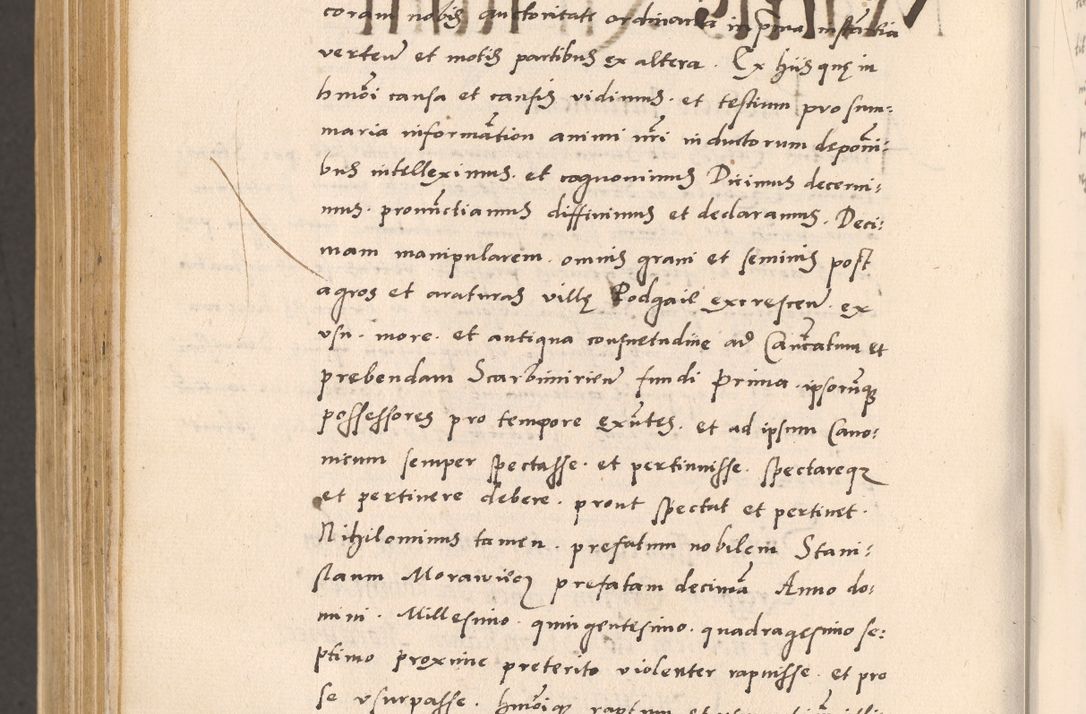 coram nobis auctoritate ordinaria in prima instantia
verteñ et motis partibus ex altera. Ex hiis quę in
hmõi causa et causis vidimus. et testium pro sum:
maria informãtion animi nr̃i inductorum deponi:
bus intelleximus. et cognouimus Dicimus decerni:
mus. pronũctiamus diffinimus et declaramus. Deci:
mam manipularem. omnis grani et seminis post
agros et araturas villę Podgaik excrescen̄. ex
vsu. more. et antiqua consuetudine ad Cantatum et
prebendam Scarbimirień fundi Prima. ipsorũq̃
possessores pro tempore exñtes. et ad ipsum Cano:
nicum semper spectasse. et pertinuisse. spectareq̃
et pertinere debere. prout spectat et pertinet.
Nihilominus tamen. prefatum nobilem Stani:
slaum Morawieċz prefatam decimã Anno do:
mini. Millesimo. quingentesimo. quadragesimo se:
ptimo proxime preterito violenter rapuisse. et pro
se vsurpasse. hmõiq̃ raptum et